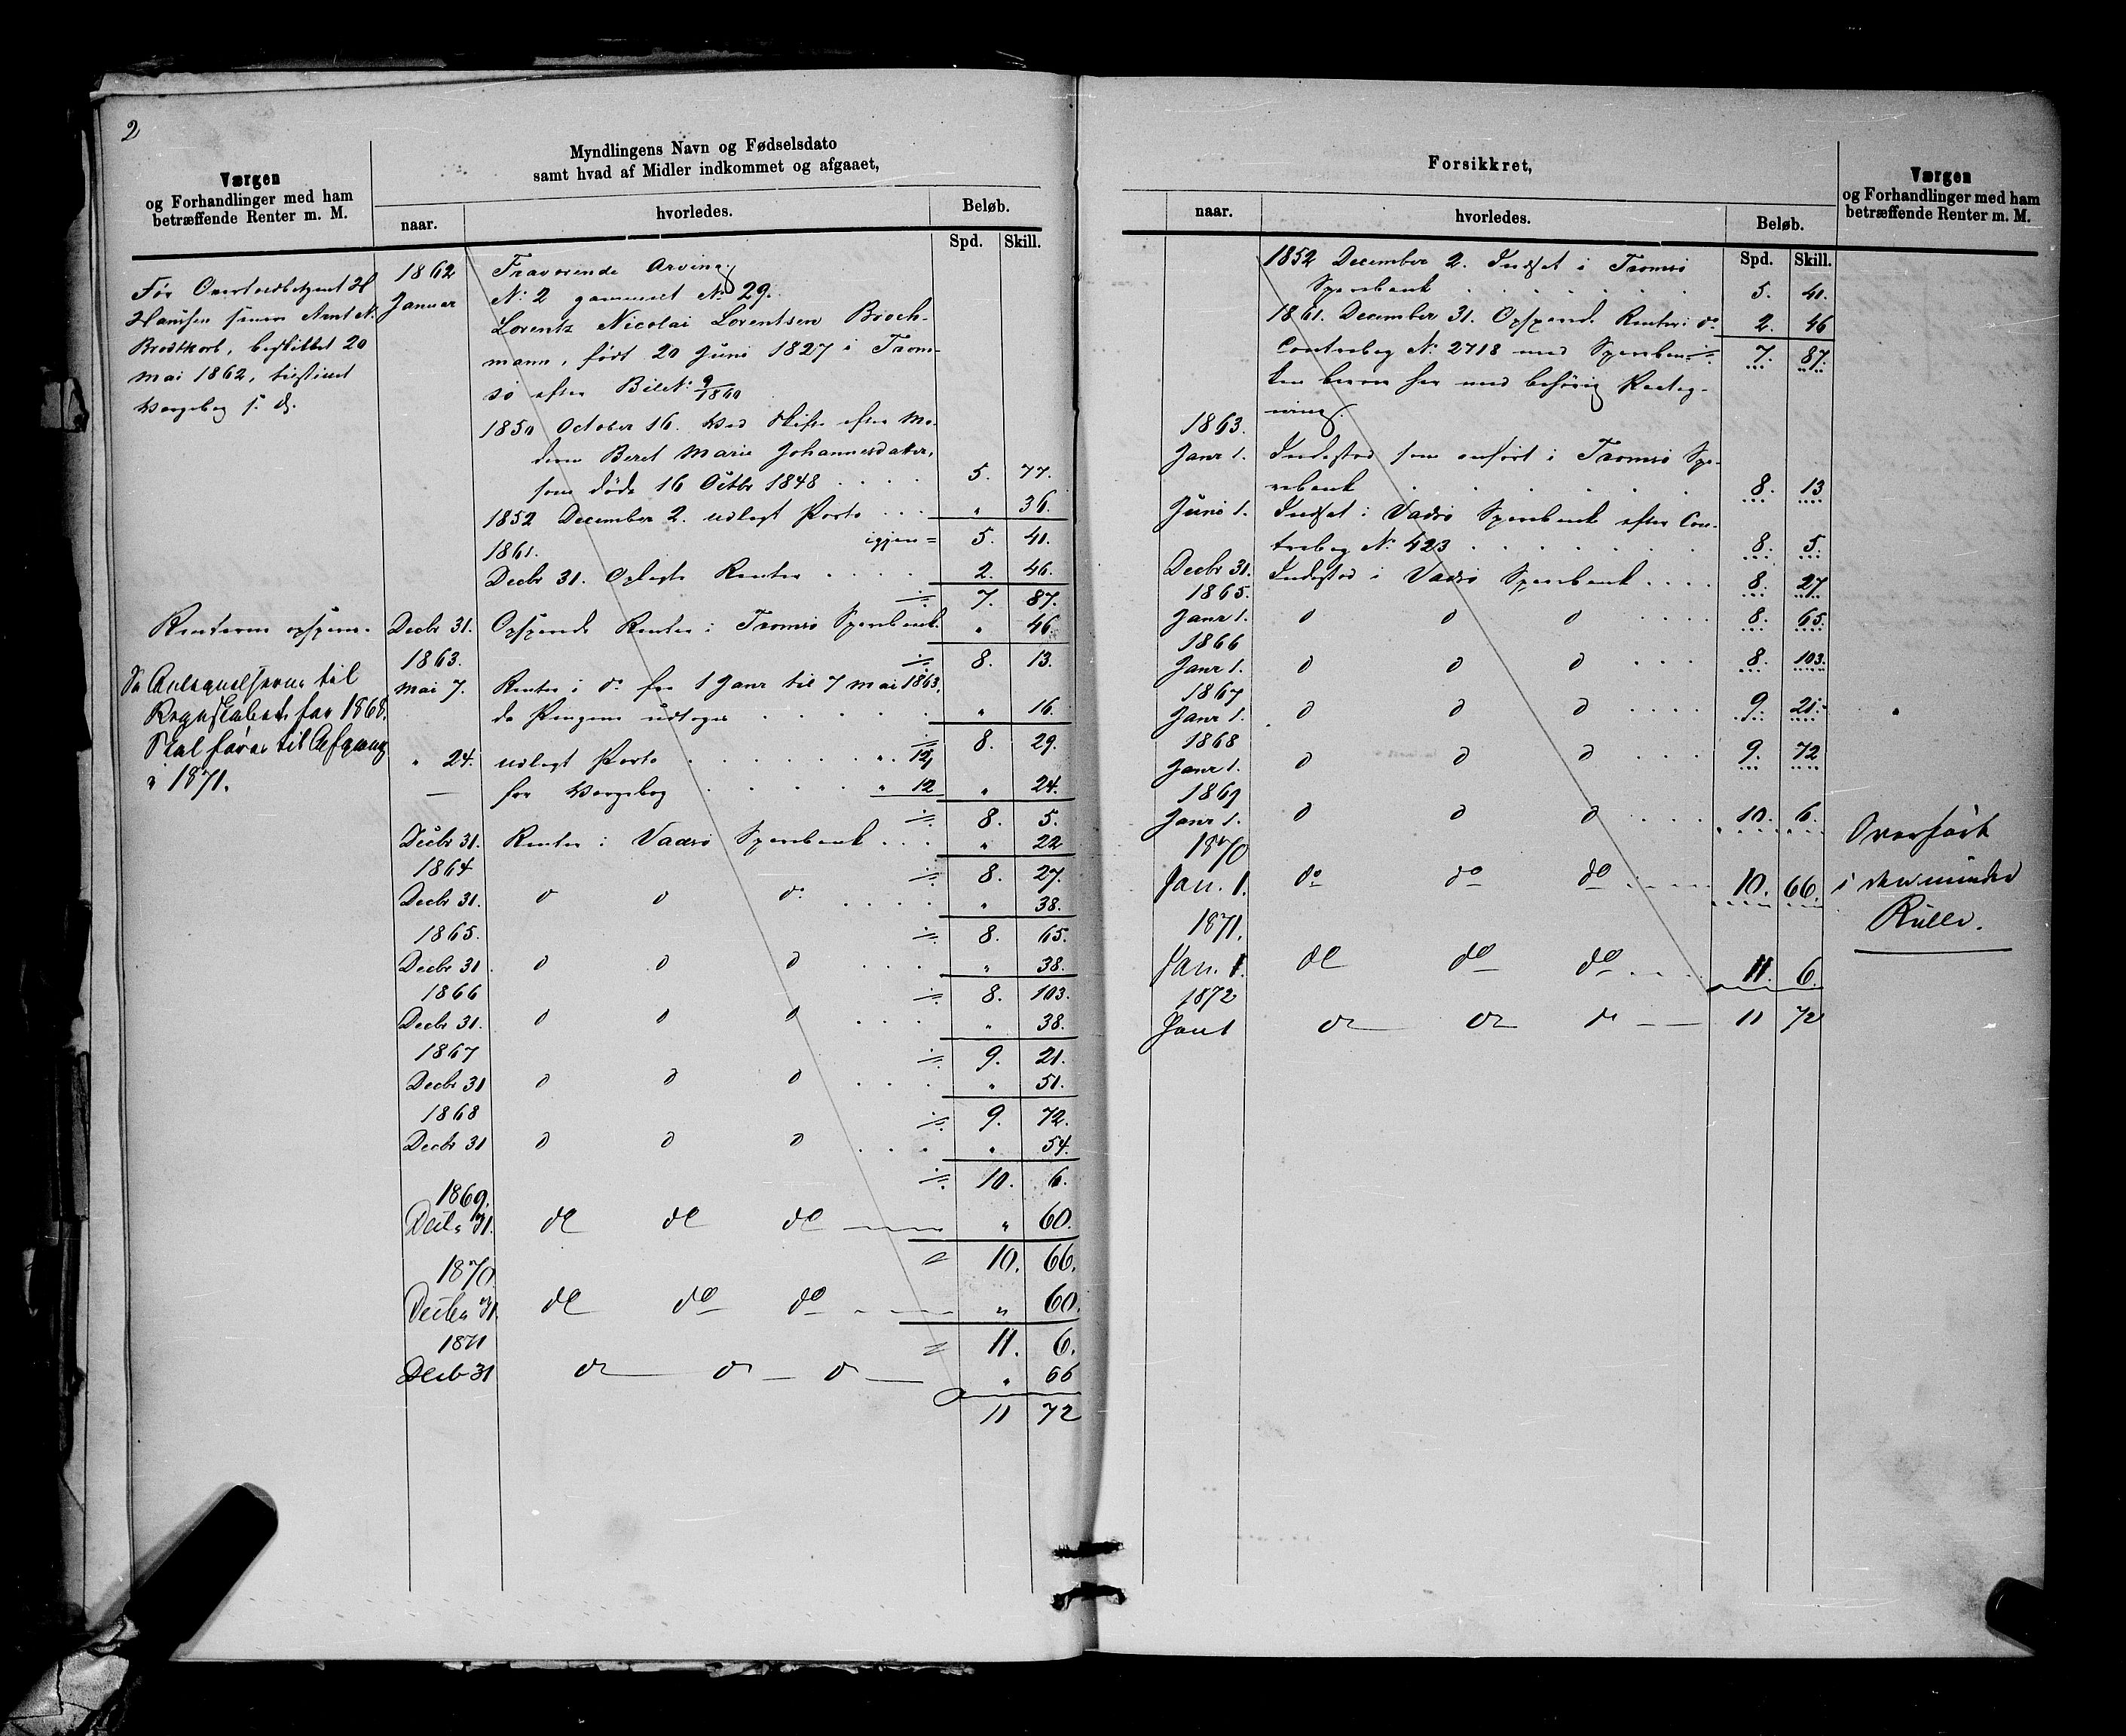 2
Værgen
og Forhandlinger med ham
betræffende Renter m. M.
Myndlingens Navn og Fødselsdato
samt hvad af Midler indkommet og afgaaet,
naar.
hvorledes.
Beløb.
Spd. Skill.
Hansen
Brodtkorb, beskikket 20
Mai 1862, tilstillet
Værgebog s. d.
Renterne opspares.
Se Antegnelserne til
Regnskabet for 1868.
Skal føres til Afgang
i 1871.
1862 Fraværende Arving.
Januar No 2 gammelt No 29.
Lorentz Nicolai Lorentsen Broch-
mann, født 20 Juni 1827 i Trom-
sø efter Bil. No 9/1860
1850 October 16. Ved Skifte efter Mo-
deren Beret Marie Johannesdatter,
som døde 16 Octbr 1848 . . . . 5. 77.
1852 December 2. udlagt Porto . . . " 36.
igjen = 5. 41.
1861.
Decbr 31. Oplagte Renter . . . . 2. 46.
7. 87.
Decbr 31. Opsparede Renter i Tromsø Sparebank " 46.
1863. 8. 13.
Mai 7. Renter i do fra 1 Janr til 7 Mai 1863,
da Pengene udtoges . . . . . " 16.
8. 29.
" 24. udlagt Porto . . . . . . . " 12
— for Værgebog . . . . " 12 " 24.
8. 5.
Decbr 31. Renter i Vadsø Sparebank . . . " 22
1864 8. 27.
Decbr 31. do do do . . . . " 38.
1865. 8. 65.
Decbr 31. do do do . . . " 38.
1866 8. 103.
Decbr 31. do do do . . . " 38.
1867 9. 21.
Decbr 31 do do do . . . " 51.
1868 9. 72.
Decbr 31 do do do . . . " 54.
10. 6.
1869.
Decbr 31. do do do " 60.
10. 66.
1870.
Decbr 31. do do do " 60.
1871 11. 6.
Decb 31 do do do " 66
11 72
Forsikkret,
naar.
hvorledes.
Beløb.
Spd. Skill.
Værgen
og Forhandlinger med ham
betræffende Renter m. M.
1852 December 2. Indsat i Tromsø
Sparebank . . . . . . 5. 41.
1861. December 31. Opsparede Renter i do 2. 46
Contrabog No 2718 med Spareban- 7. 87.
ken beroer her med behørig Paateg-
ning.
1863.
Janr 1. Indestod som anført i Tromsø Spa-
rebank . . . . . . 8. 13
Juni 1. Indsat i Vadsø Sparebank efter Con-
trabog No 423 . . . . . . 8. 5.
Decbr 31. Indestod i Vadsø Sparebank . . . . 8. 27
1865.
Janr 1. do do do . . . . 8. 65.
1866
Janr 1. do do do . . . 8. 103.
1867
Janr 1. do do do . . . . 9. 21.
1868
Janr 1. do do do . . . . 9. 72
1869
Janr 1. do do do . . . . 10. 6.
1870
Jan. 1. do do do . . . . 10. 66.
1871.
Jan. 1. do do do . . . . 11. 6.
1872
Jan 1 do do do — — 11 72
Overført
i den mindre
Rulle.